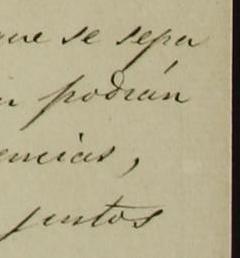 que se sepa
podrán
encias,
juntos